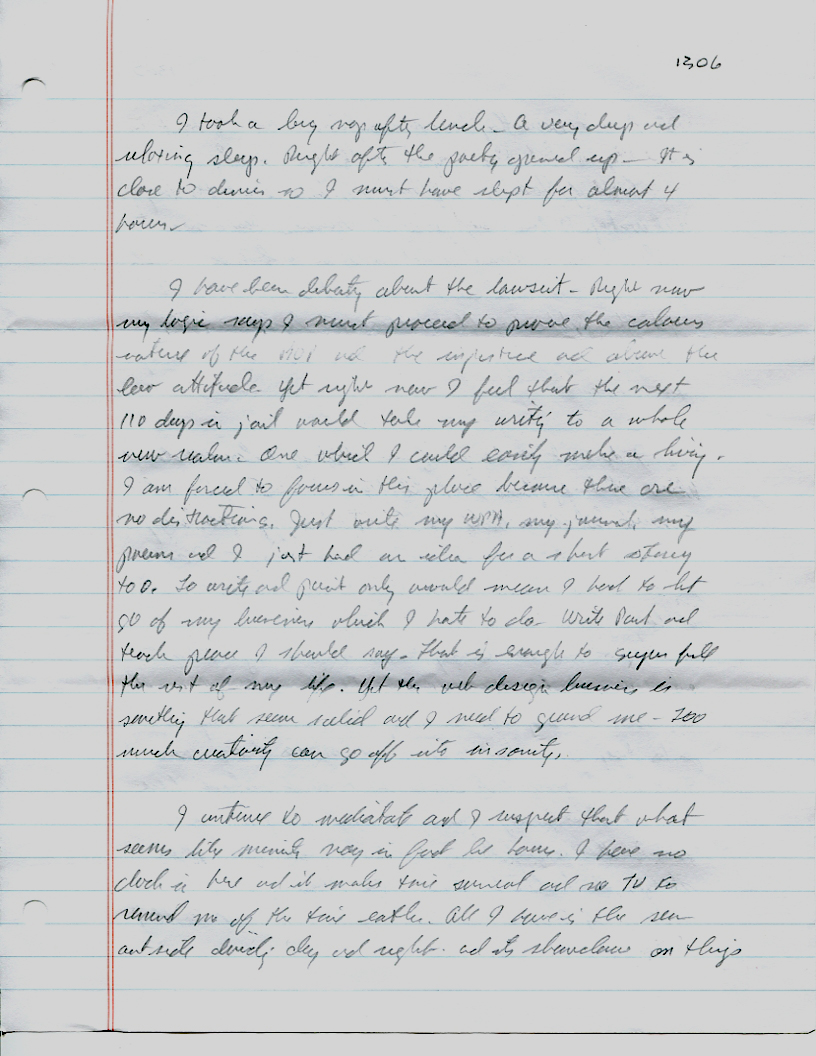 1306
I took a long nap after lunch. A very deep and
relaxing sleep. Right after the poetry opened up - It is
close to dinner so I must have slept for almost 4
hours
I have been debating about the lawsuit - Right now
my logic says I must proceed to prove the callous
nature of the and the injustice and above the
law attitude. Yet right now I feel that the next
110 days in jail would take my writing to a whole
new realm. One which I could easily make a living.
I am forced to focus in this place because there are
no distractions. Just write my my journal, my
poems and I just had an idea for a short story
too. To write and paint only would mean I had to let
go of my business which I hate to do. Write Paint and
teach peace I should say. That is enough to super fill
the rest of my life. Yet the web design business is
something that seems solid and I need to ground me - Too
much creativity can go off into insanity.
I continue to meditate and I suspect that what
seems like minutes may in fact be hours. I have no
clock in here and it makes time surreal and no TV to
remind me of the time either. All I have is the sun
outside dividing day and night. and its shadows on things